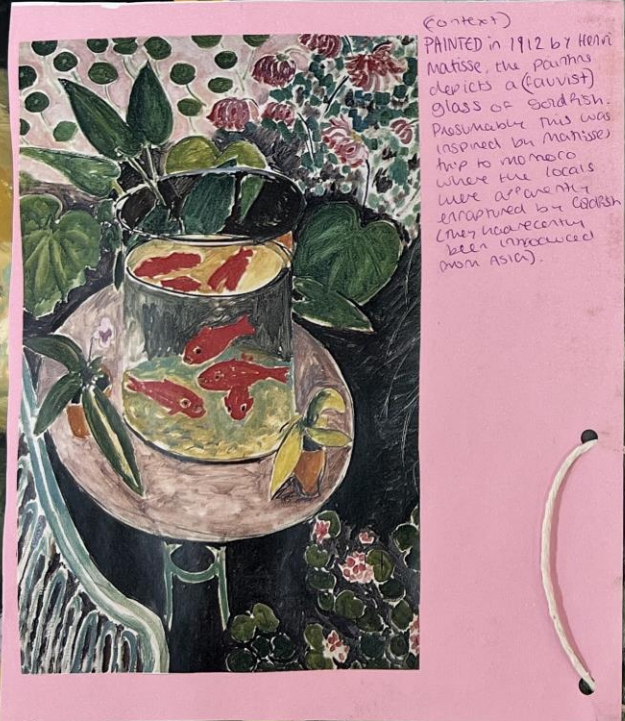 (context)
PAINTED in 1912 by Henri
Matisse, the painting
depicts a (fauvist)
glass of Goldfish.
Presumably this was
inspired by Matisse's
trip to Morroco
where the locals
were apparently
enraptured by Goldfish
(they had recently
been introduced
from Asia).